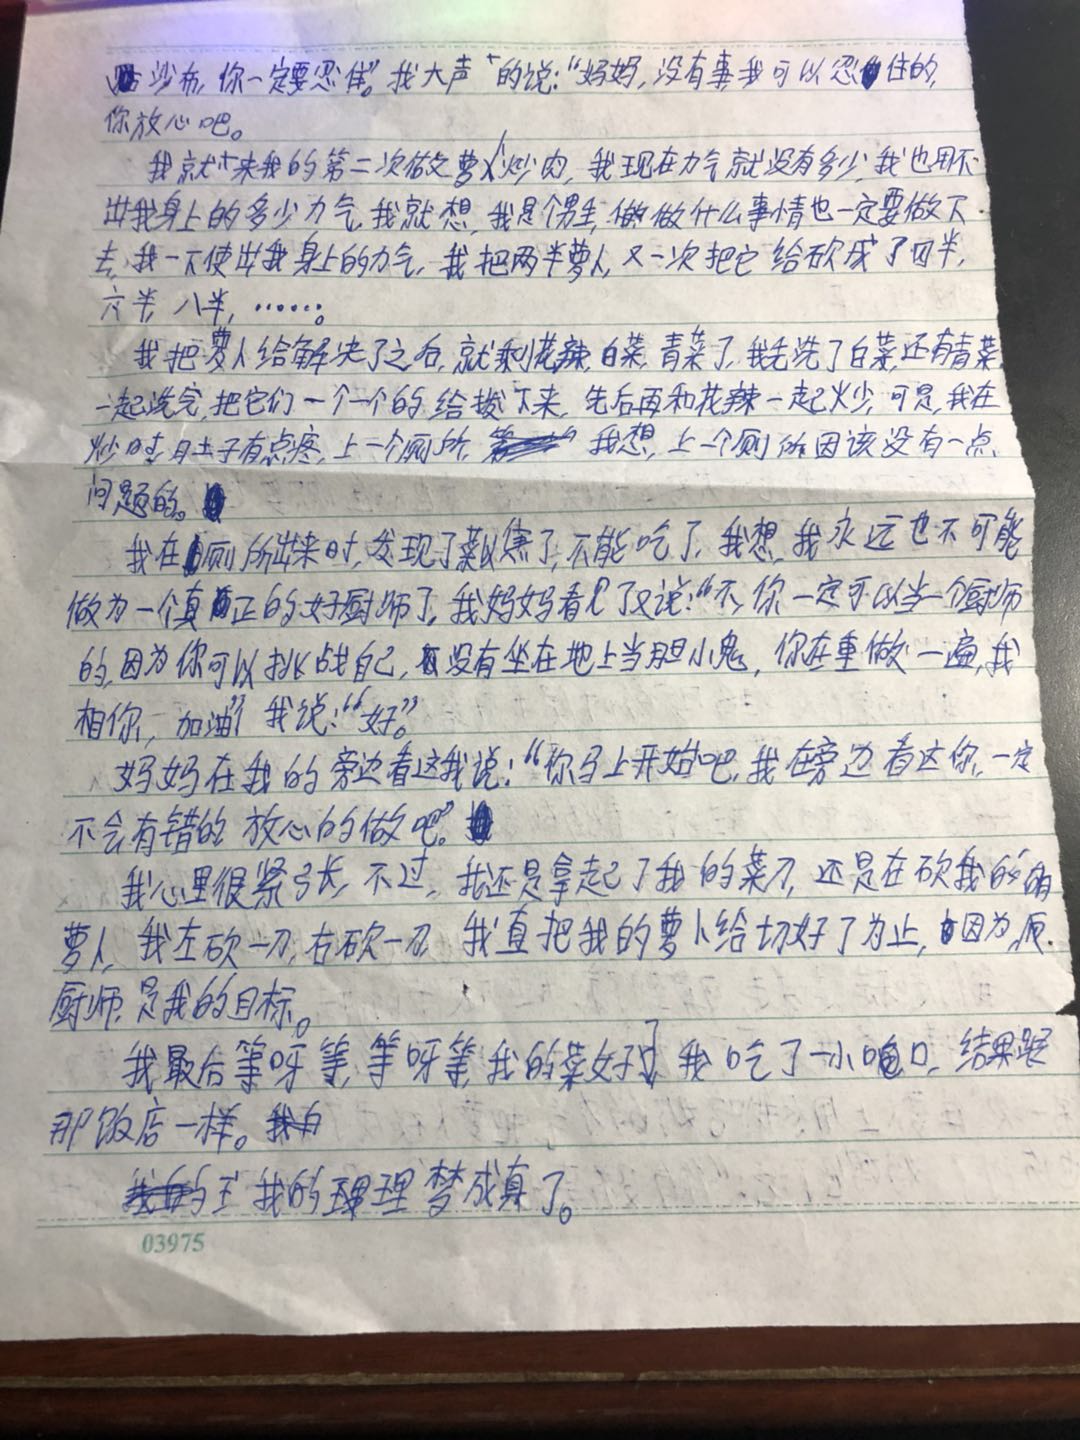 沙布，你一定要忍住”。我大声的说：“妈妈，没有事我可以忍住的，
你放心吧。
我就来我的第二次做萝卜炒肉，我现在力气就没有多少，我也用不
出我身上的多少力气，我就想，我是个男生，做什么事情也一定要做下
去，我一下使出我身上的力气，我把两半萝卜，又一次把它给砍成了四半，
六半，八半，……。
我把萝卜给解决了之后，就剩花辣，白菜，青菜了，我先洗了白菜，还有青菜
一起洗完，把它们一个一个的给拨下来，先后再和花辣一起火少，可是，我在
炒时，肚子有点疼，上一个厕所，我想，上一个厕所因该没有一点
问题的。
我在厕所出来时，发现了菜以焦了，不能吃了，我想，我永远也不可能
做为一个真正的好厨师了，我妈妈看见了又说：“不，你一定可以当一个厨师
的，因为你可以挑战自己，没有坐在地上当胆小鬼，你在重做一遍，我
相你，加油” 我说：“好。”
妈妈在我的旁边看这我说：“你马上开始吧，我在旁边看这你，一定
不会有错的 放心的做吧。”
我心里很紧张，不过，我还是拿起了我的菜刀，还是在砍我的
萝卜，我左砍一刀，右砍一刀 我直把我的萝卜给切好了为止，因为，
厨师，是我的目标。
我最后等呀等，等呀等，我的菜好了，我吃了一小口，结果跟
那饭店一样。
我的理梦成真了。
03975